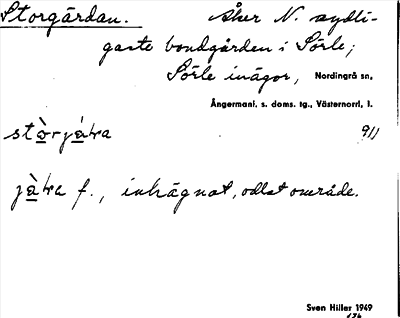 Storgårdan. Åker N. sydli-
gaste bondgården i Sörle;
Sörle inägor, Nordingrå sn,
Ångermanl. s. doms. tg., Västernorrl. l.
911
jà̱ka f., inhägnat, odlat område.
Sven Hiller 1949